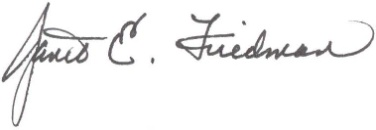 Janet E. Friedman